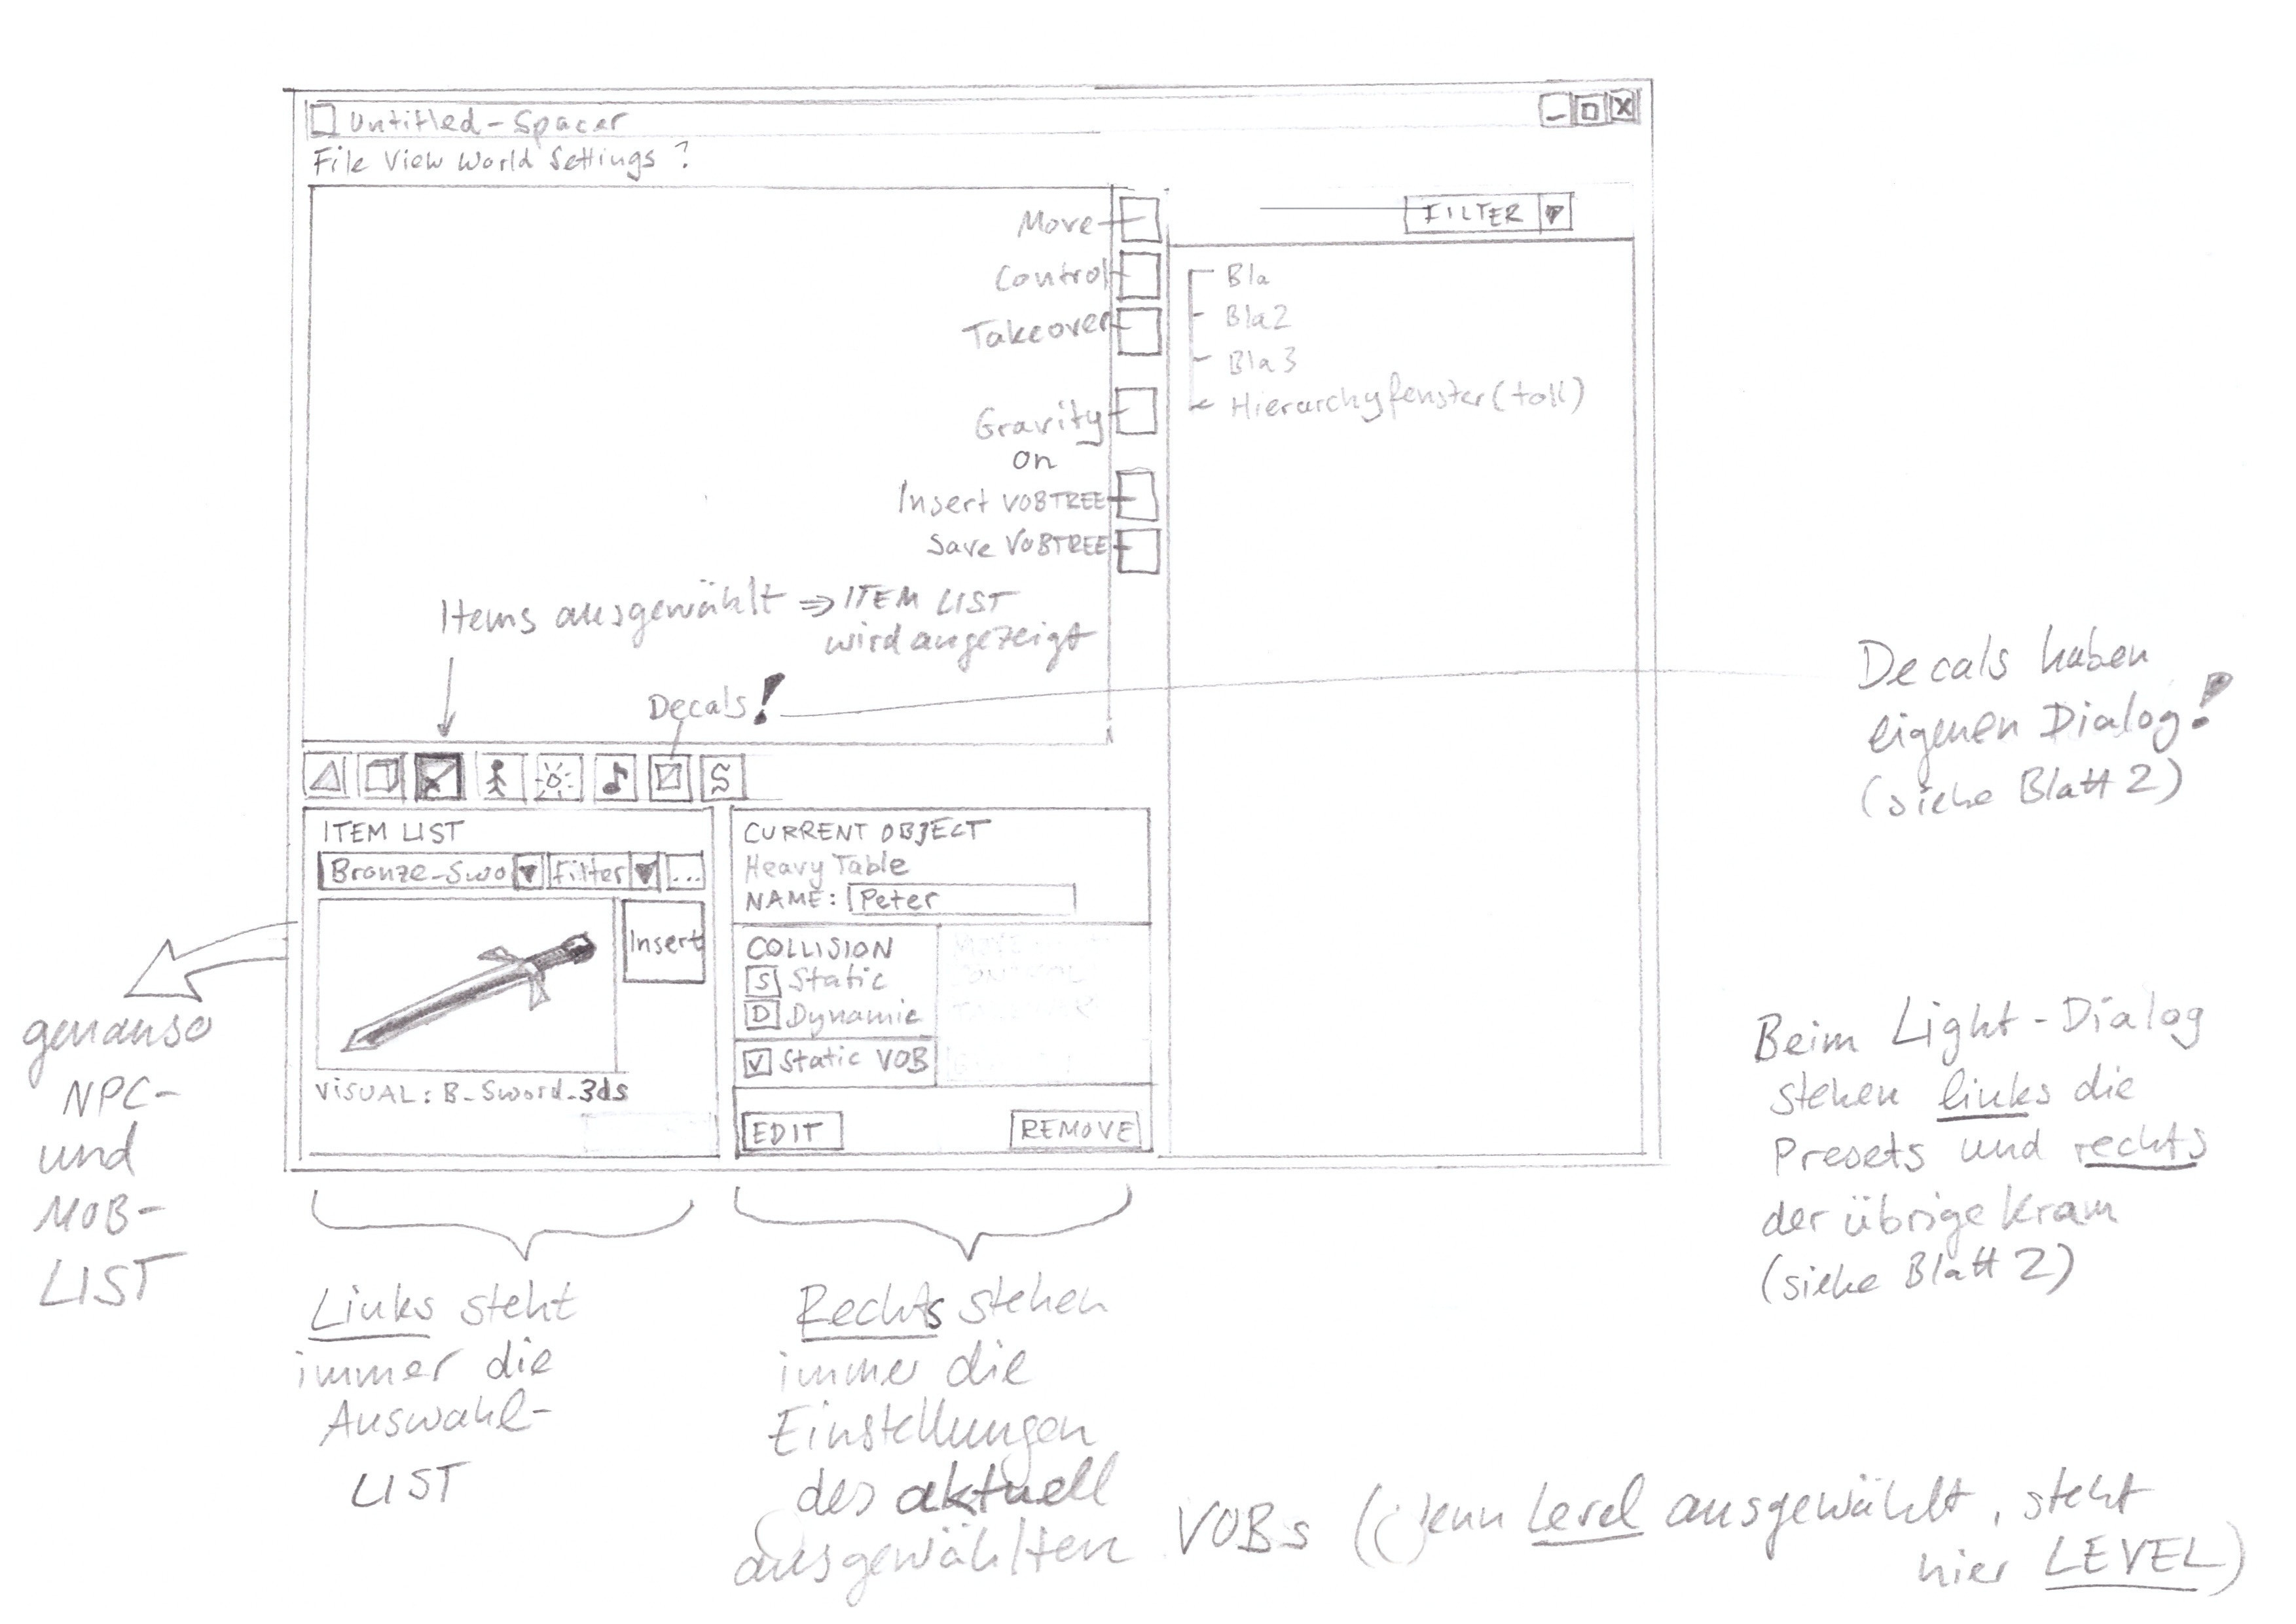 Untitled-Spacer
File View World Settings ?
FILTER
Move
Control
Takeover
Gravity
on
Insert VOBTREE
Save VOBTREE
Bla
Bla2
Bla3
Hierarchyfenster (toll)
Items ausgewählt ⇒ ITEM LIST
wird angezeigt
Decals!
Decals haben
eigenen Dialog!
(siehe Blatt 2)
S
ITEM LIST
Bronze_Swo Filter ...
Insert
VISUAL: B_Sword_3ds
CURRENT OBJECT
Heavy Table
NAME: Peter
COLLISION
S Static
D Dynamic
Static VOB
EDIT REMOVE
genauso
NPC-
und
MOB-
LIST
Beim Light-Dialog
stehen links die
Presets und rechts
der übrige Kram
(siehe Blatt 2)
Links steht
immer die
Auswahl-
LIST
Rechts stehen
immer die
Einstellungen
des aktuell
ausgewählten VOBs (wenn Level ausgewählt, steht
hier LEVEL)